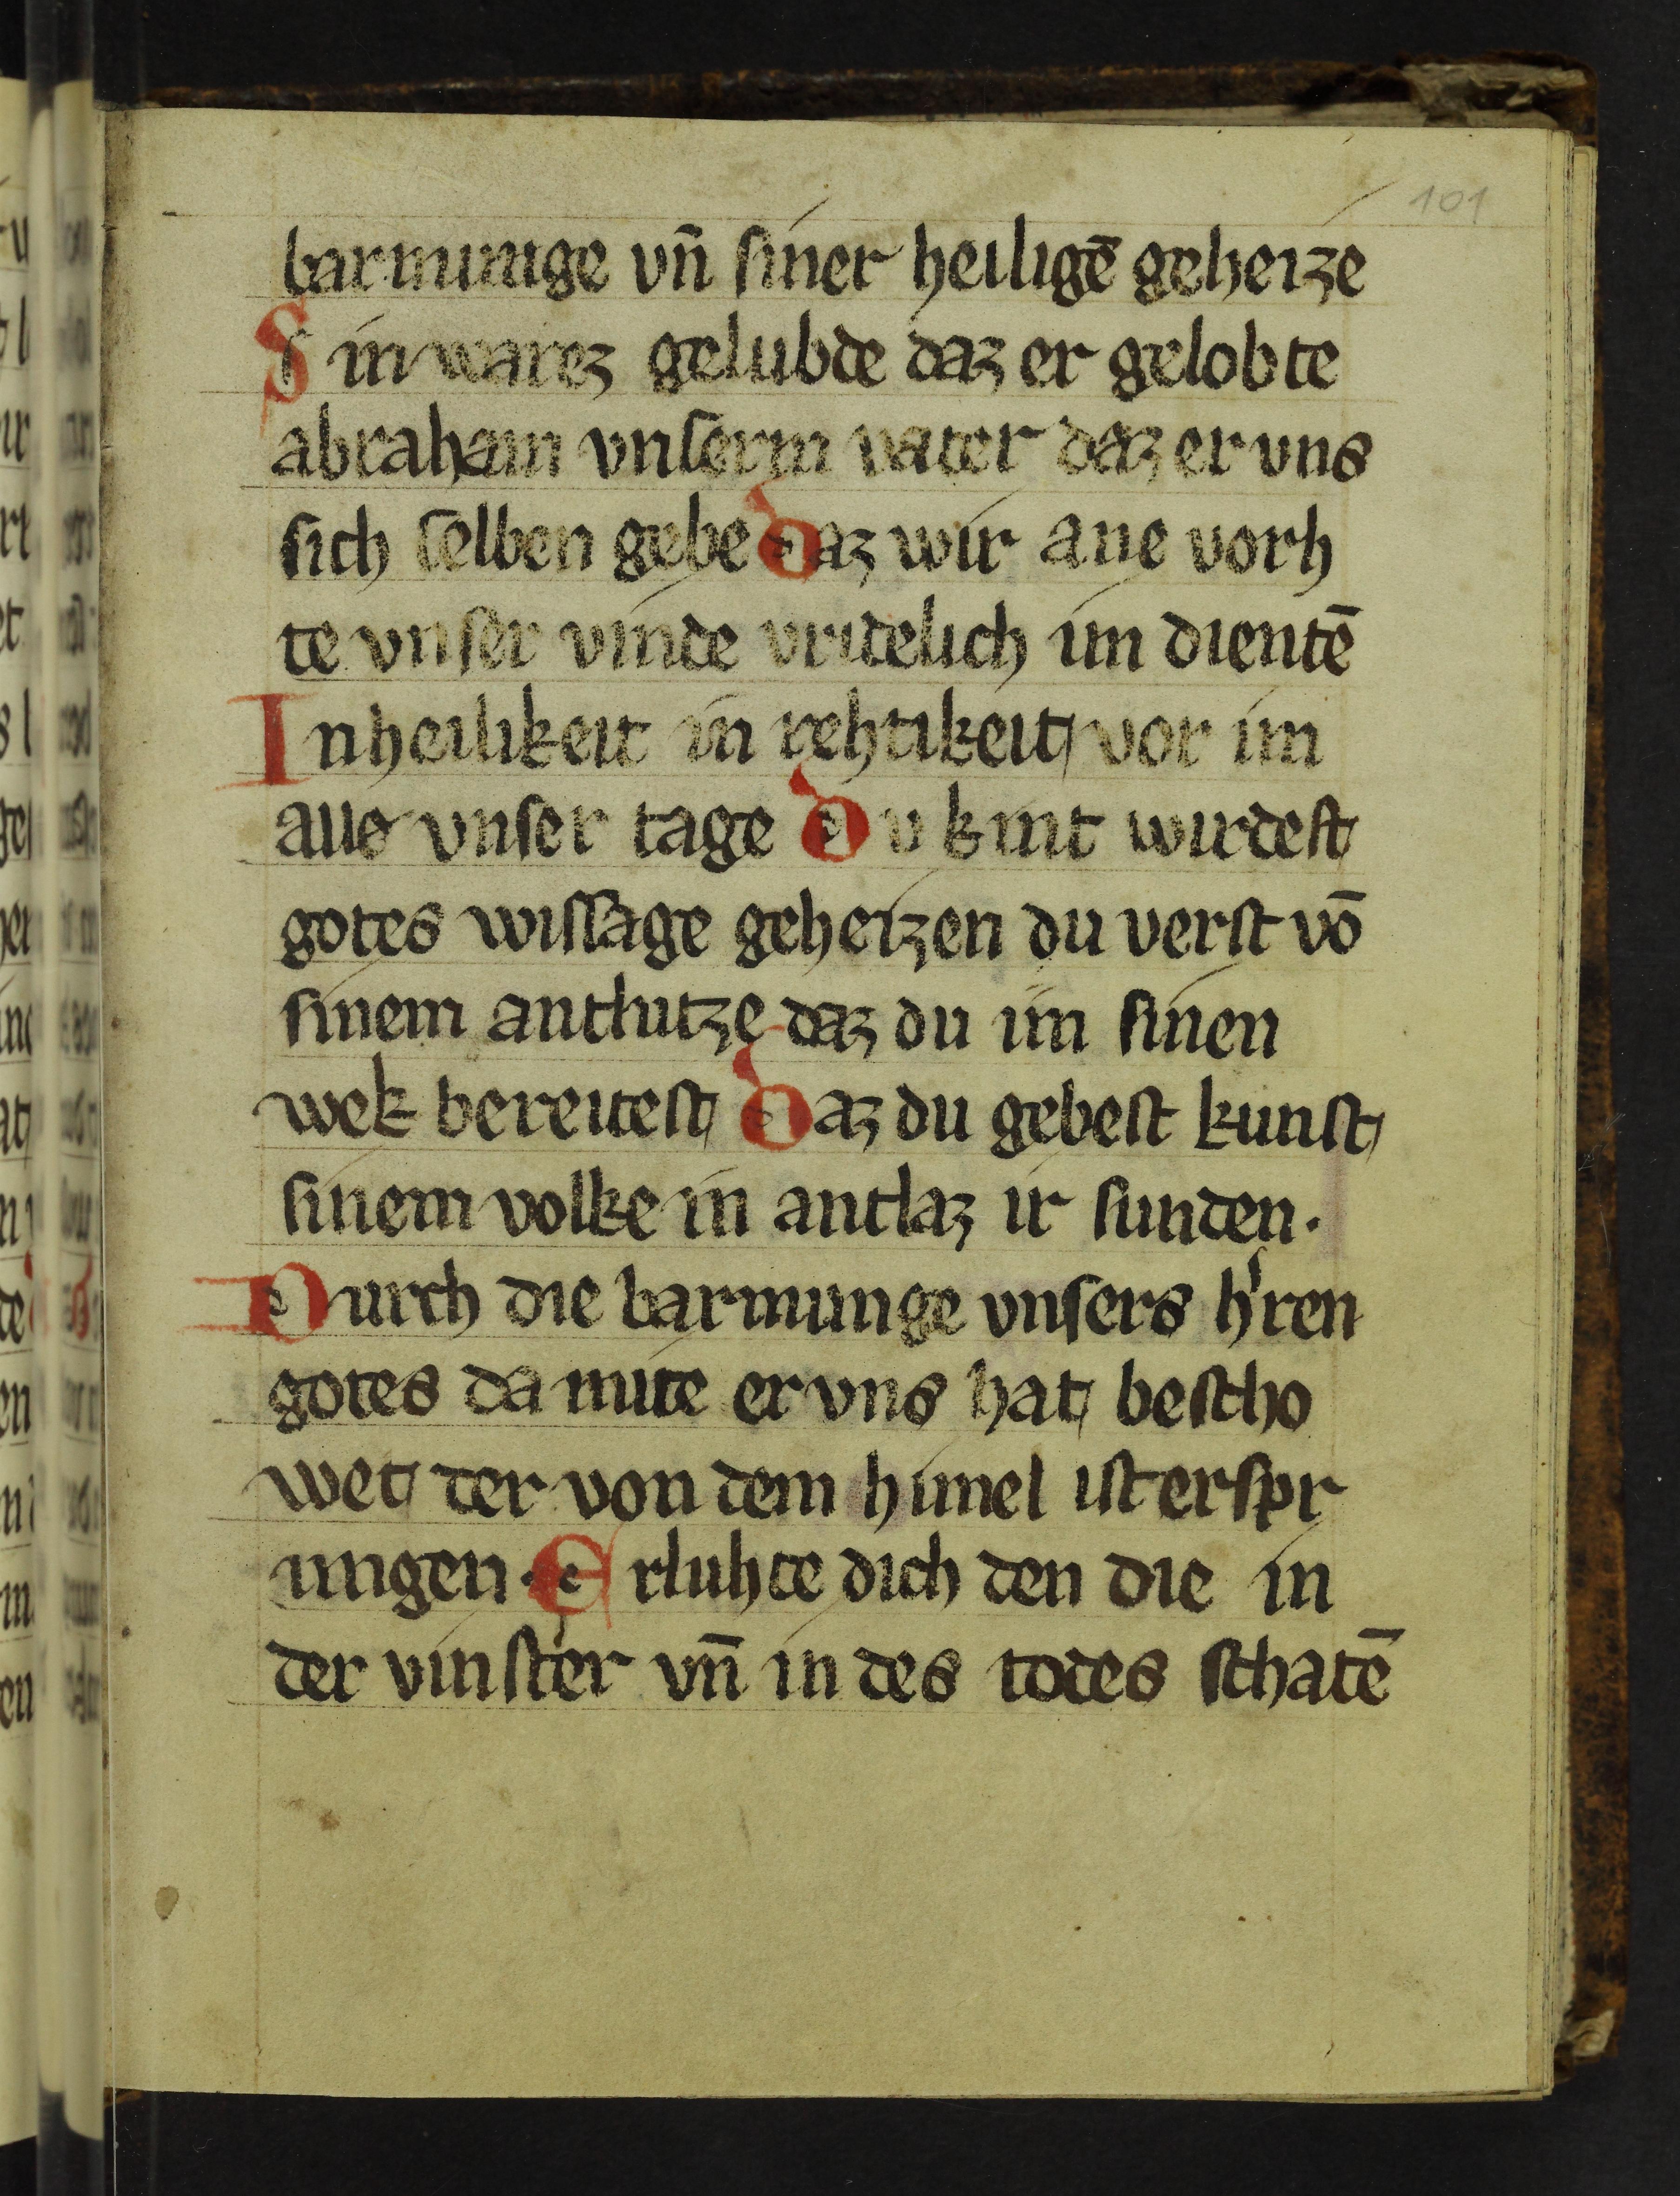 101
barmunge vn̄ siner heiligē geheize
Sin warez gelubde daz er gelobte
abraham vnserm vater daz er vns
sich selben gebe Daz wir ane vorh
te vnser vinde vridelich im dientē
In heilikeit in rehtikeit vor im
alle vnser tage Du kint wirdest
gotes wissage geheizen du verst vō
sinem antlutze daz du im sinen
wek bereitest Daz du gebest kunst
sinem volke in antlaz ir sunden.
Durch die barmunge vnsers h'ren
gotes da mite er vns hat bescho
wet der von dem himel ist erspr
ungen. Erluhte dich den die in
der vinster vn̄ in des todes schatē